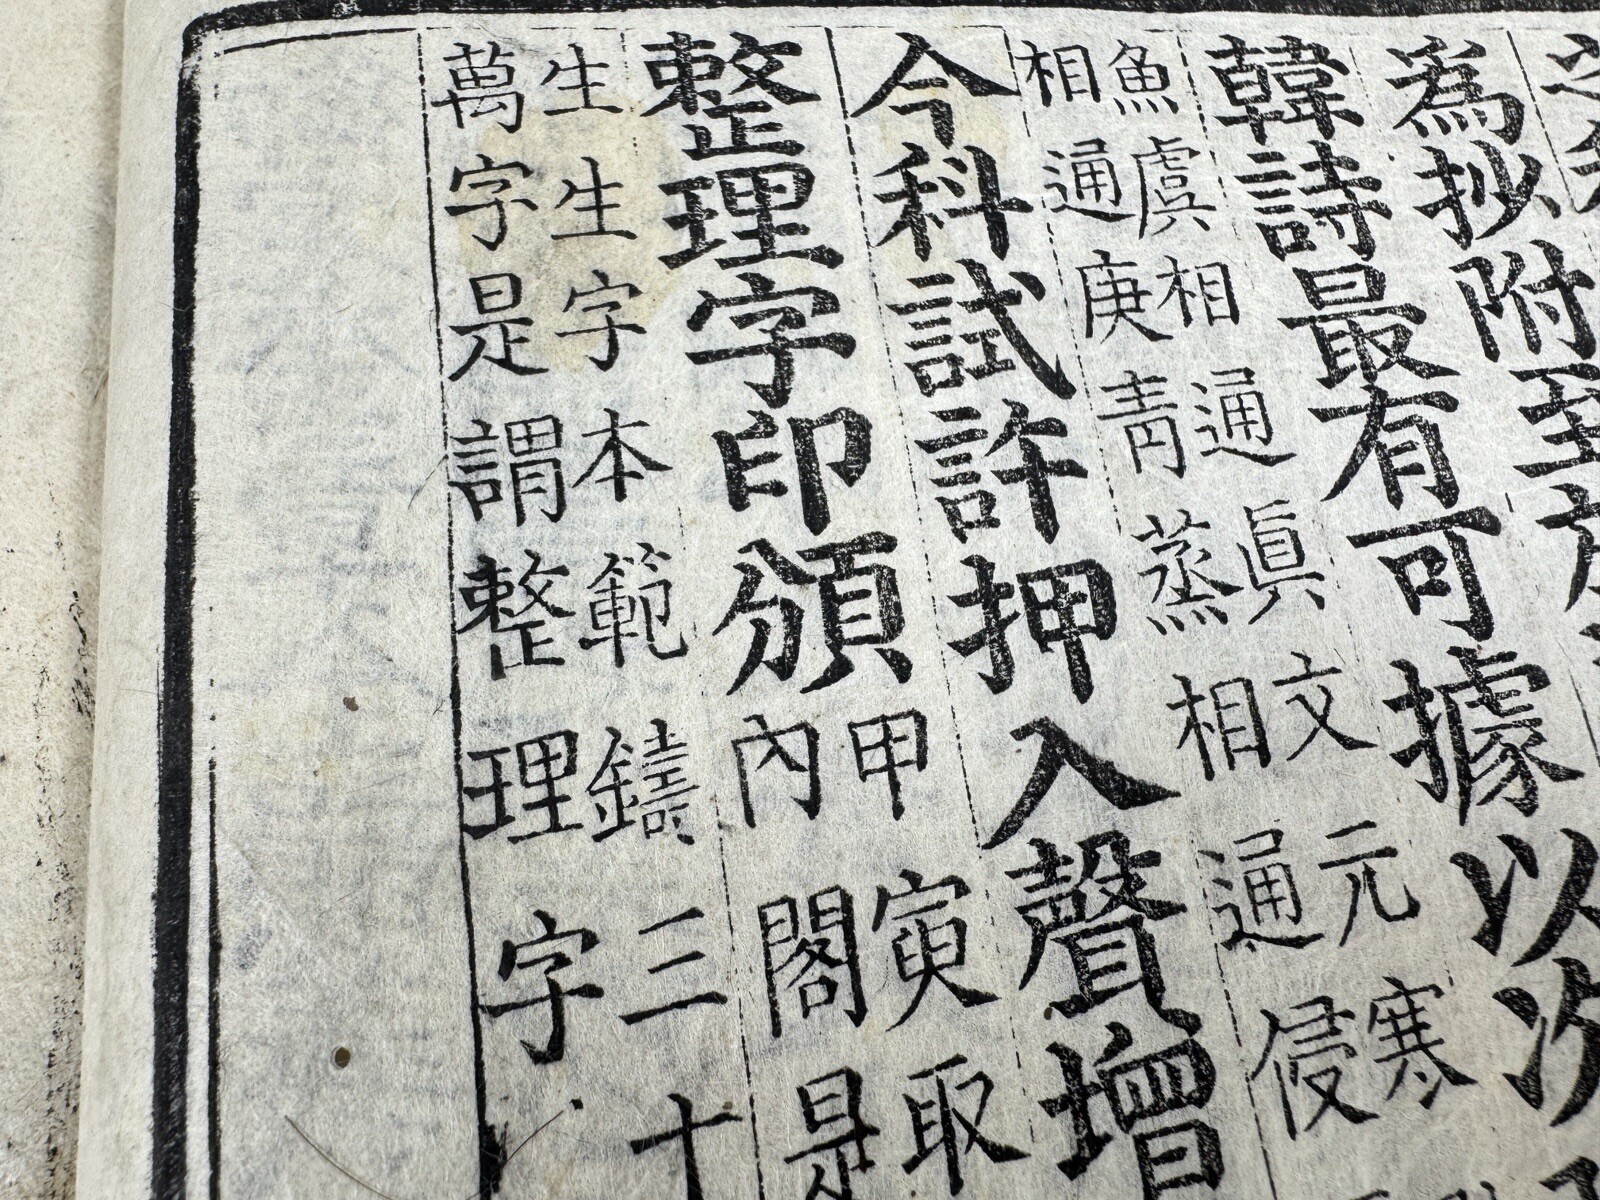 為抄附到
韓詩最有可據以次
魚虞相通眞文元寒
相通庚青蒸相通侵
今科試許押入聲增
整理字印頒
甲寅取
內閣是
生生字本範鑄三十
萬字是謂整理字